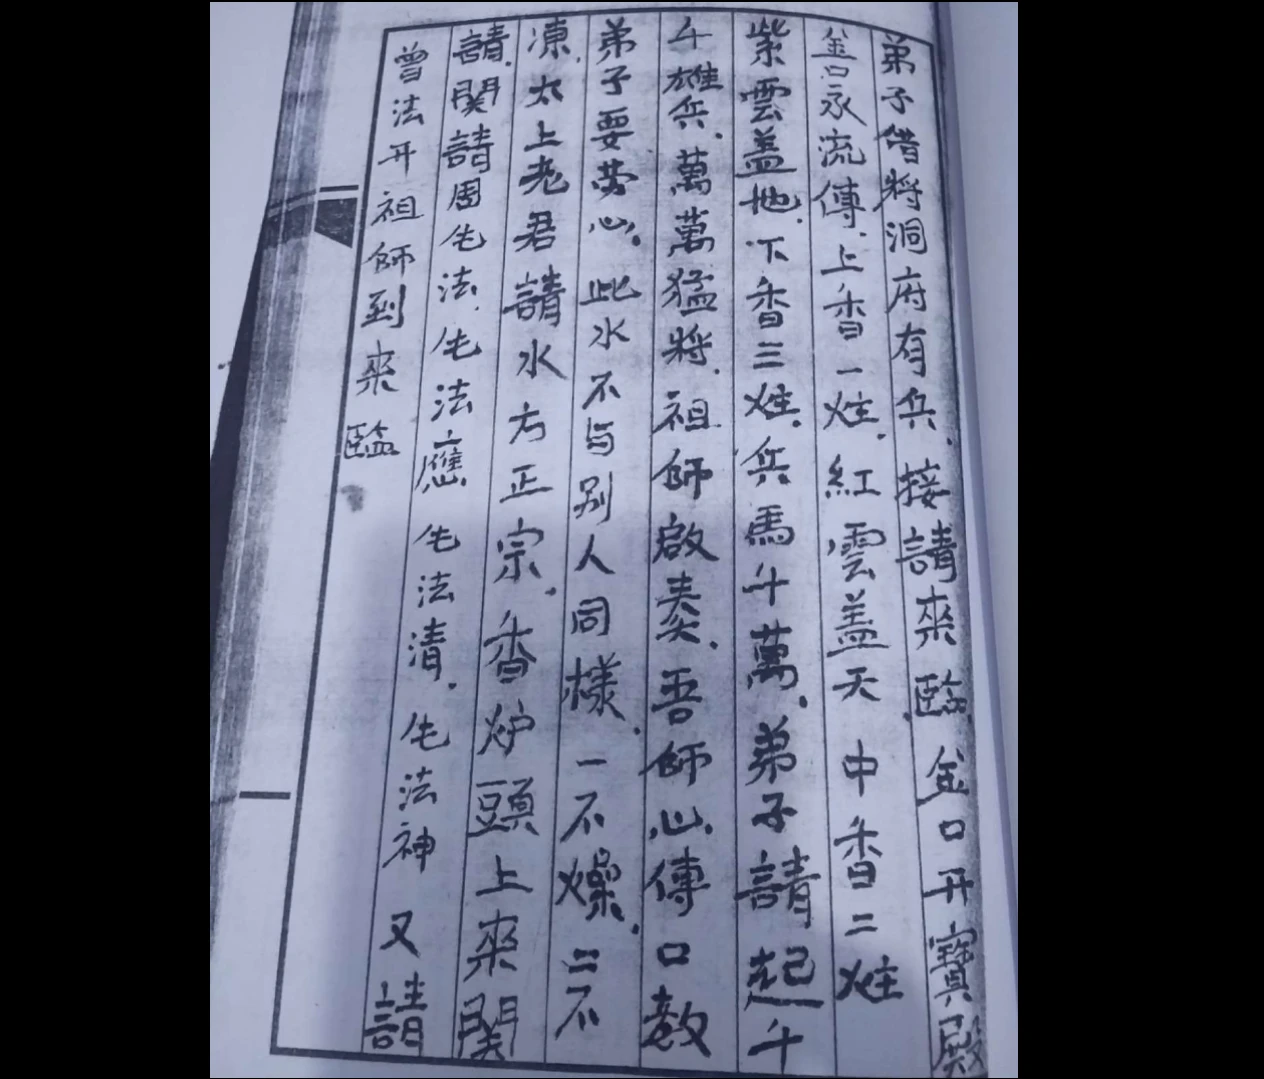 弟子借将洞府有兵.接請來臨.金口开寶殿
金口永流傳.上香一炷.紅雲盖天 中香二炷
紫雲盖地.下香三炷.兵馬千萬.弟子請起千
千雄兵.萬萬猛將.祖師啟奏.吾師心.傳口教
弟子要劳心.此水不与别人同樣.一不燥.二不
凍.太上老君請水方正宗.香炉頭上來関
請.関請周法.法應 法清.法神 又請
曾法开祖師到來臨